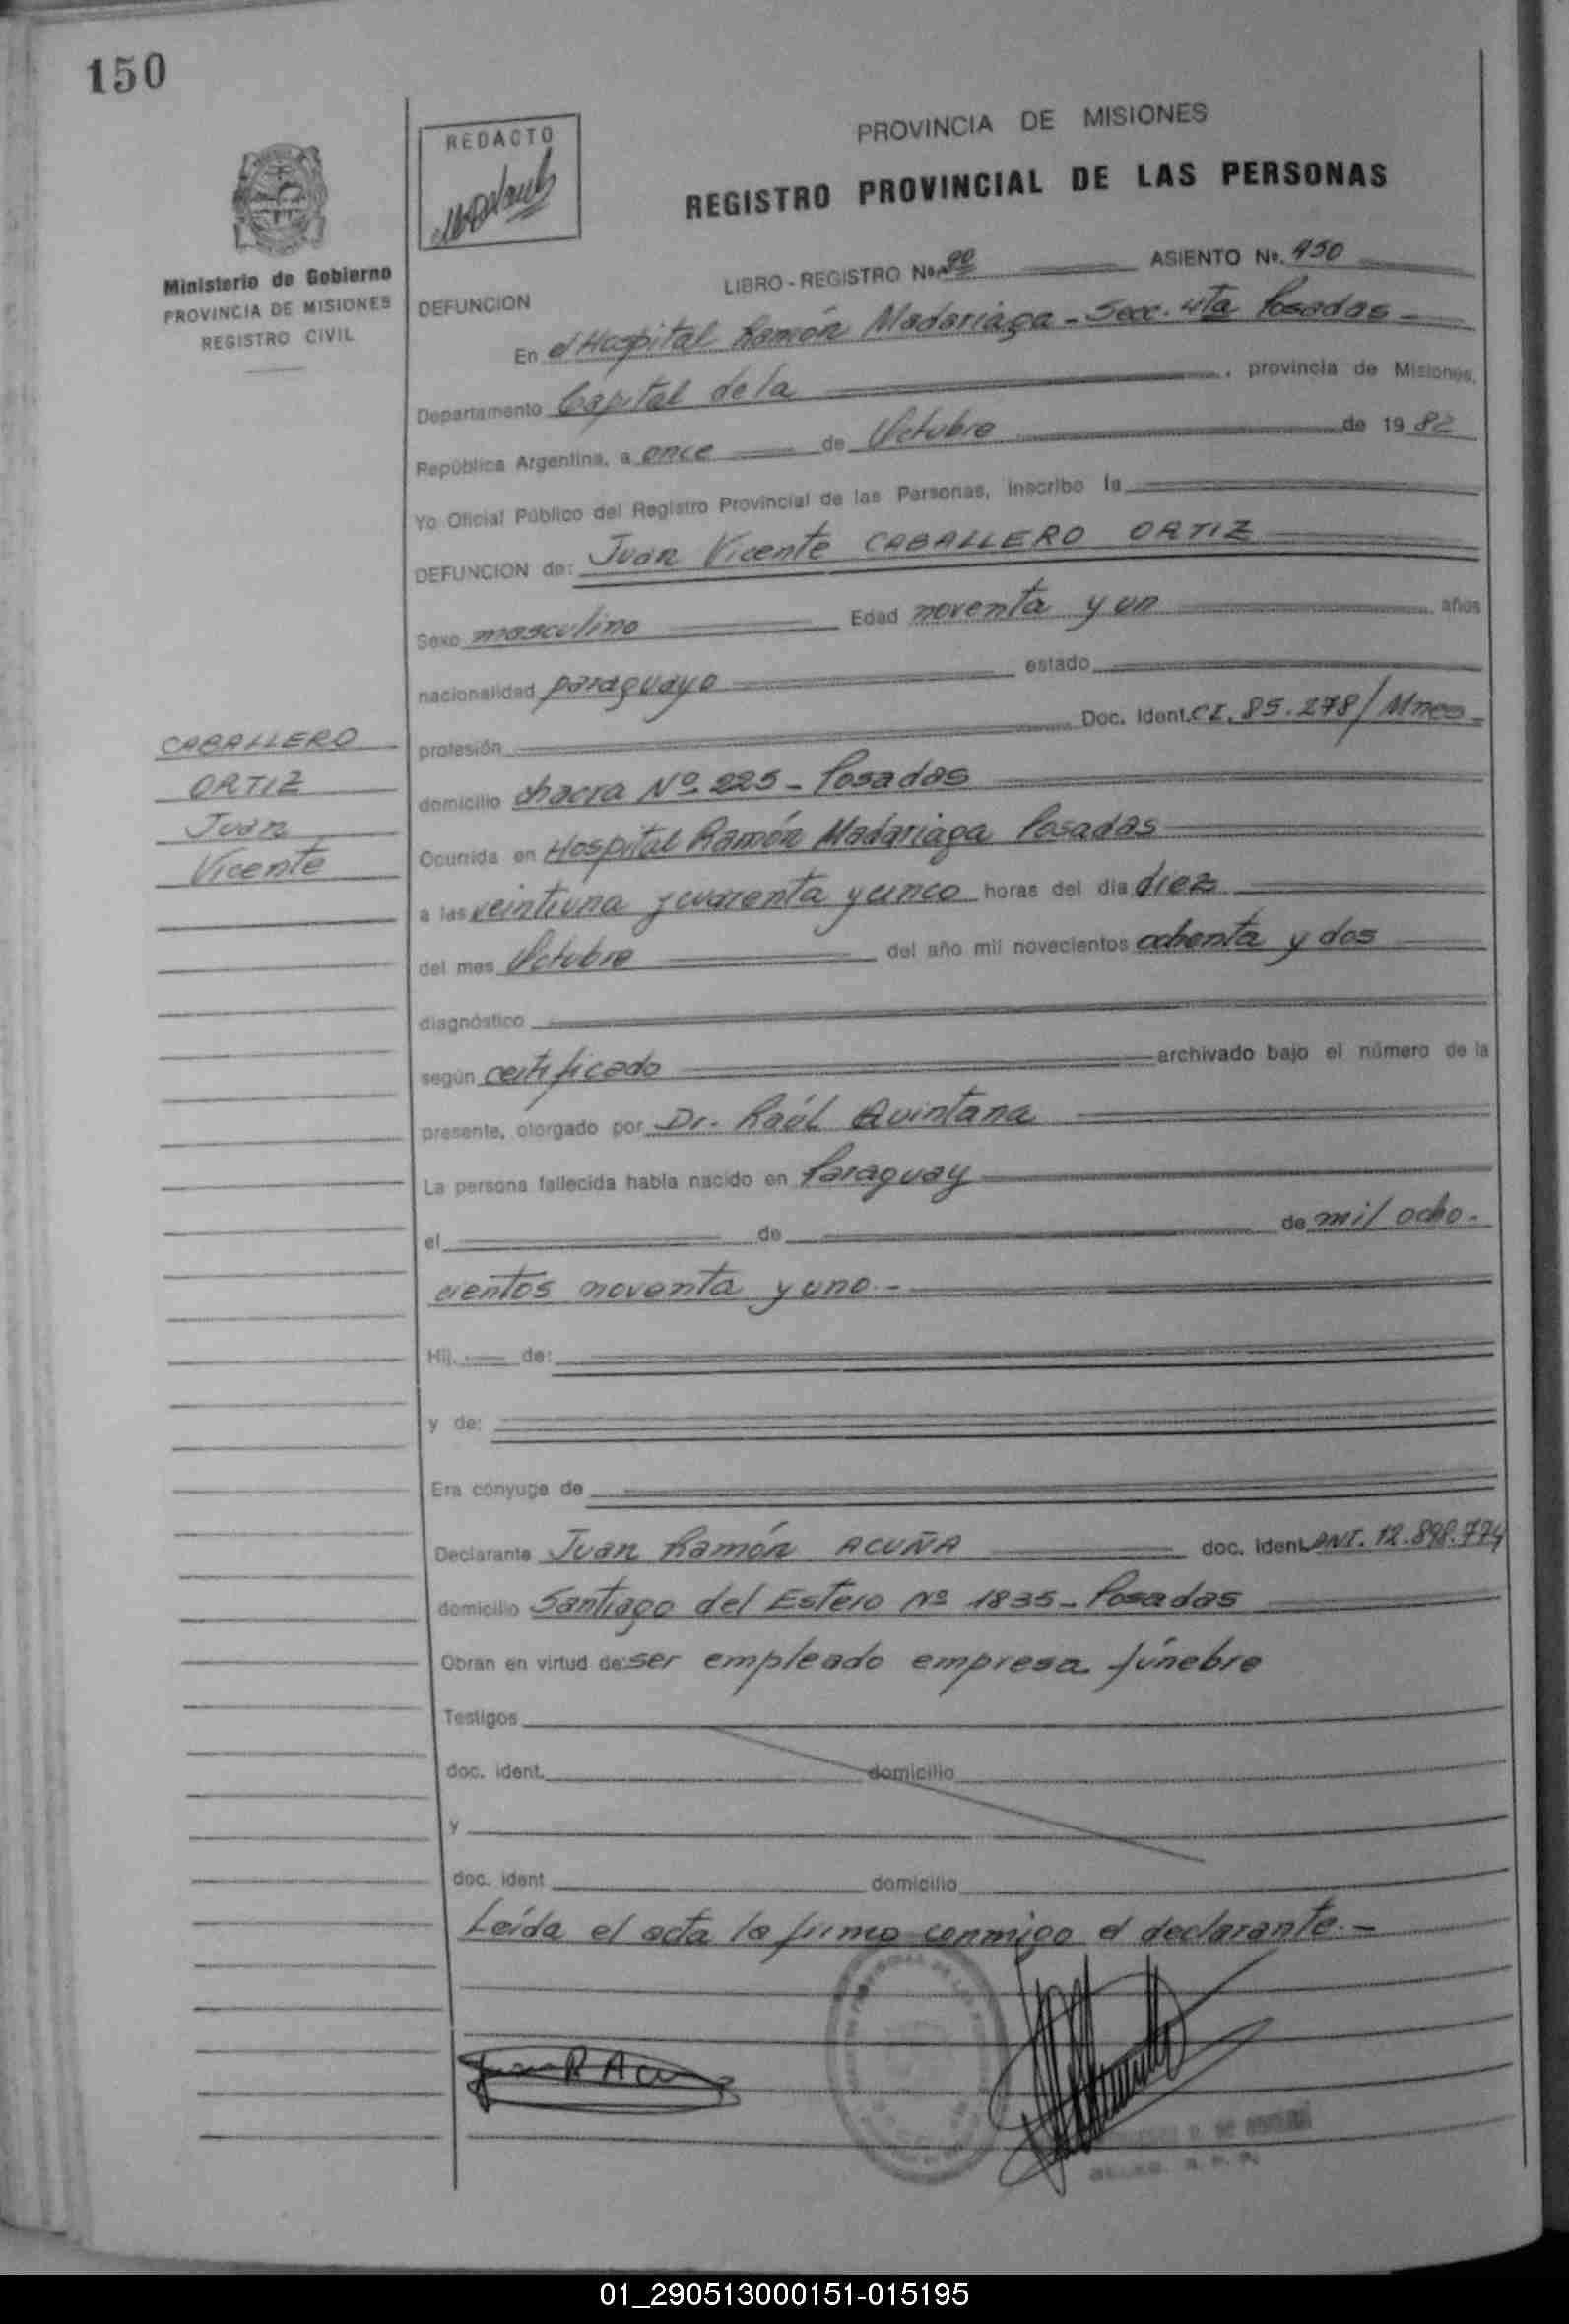 150
REDACTO
PROVINCIA DE MISIONES
REGISTRO PROVINCIAL DE LAS PERSONAS
Ministerio de Gobierno
PROVINCIA DE MISIONES
REGISTRO CIVIL
LIBRO - REGISTRO No. ASIENTO No. 450
DEFUNCION
En el Hospital Ramón Madariaga - Secc. 4ta Posadas -
Departamento Capital de la , provincia de Misiones,
República Argentina, a once de Octubre de 1982
Yo Oficial Público del Registro Provincial de las Personas, inscribo la
DEFUNCION de: Juan Vicente CABALLERO ORTIZ
Sexo masculino Edad noventa y un años
nacionalidad paraguayo estado
profesión Doc. Ident. CI. 85.278/Mnes
CABALLERO
ORTIZ
Juan
Vicente
domicilio chacra Nº 225 - Posadas
Ocurrida en Hospital Ramón Madariaga Posadas
a las veintiuna y cuarenta y cinco horas del día diez
del mes Octubre del año mil novecientos ochenta y dos
diagnóstico
según certificado archivado bajo el número de la
presente, otorgado por Dr. Raúl Quintana
La persona fallecida había nacido en Paraguay
el de de mil ocho-
cientos noventa y uno.-
Hij. de:
y de:
Era cónyuge de
Declarante Juan Ramón ACUÑA doc. Ident. DNI. 12.898.774
domicilio Santiago del Estero Nº 1835 - Posadas
Obran en virtud de: ser empleado empresa fúnebre
Testigos
doc. ident. domicilio
y
doc. ident domicilio
Leída el acta la firma conmigo el declarante.-
01_290513000151-015195